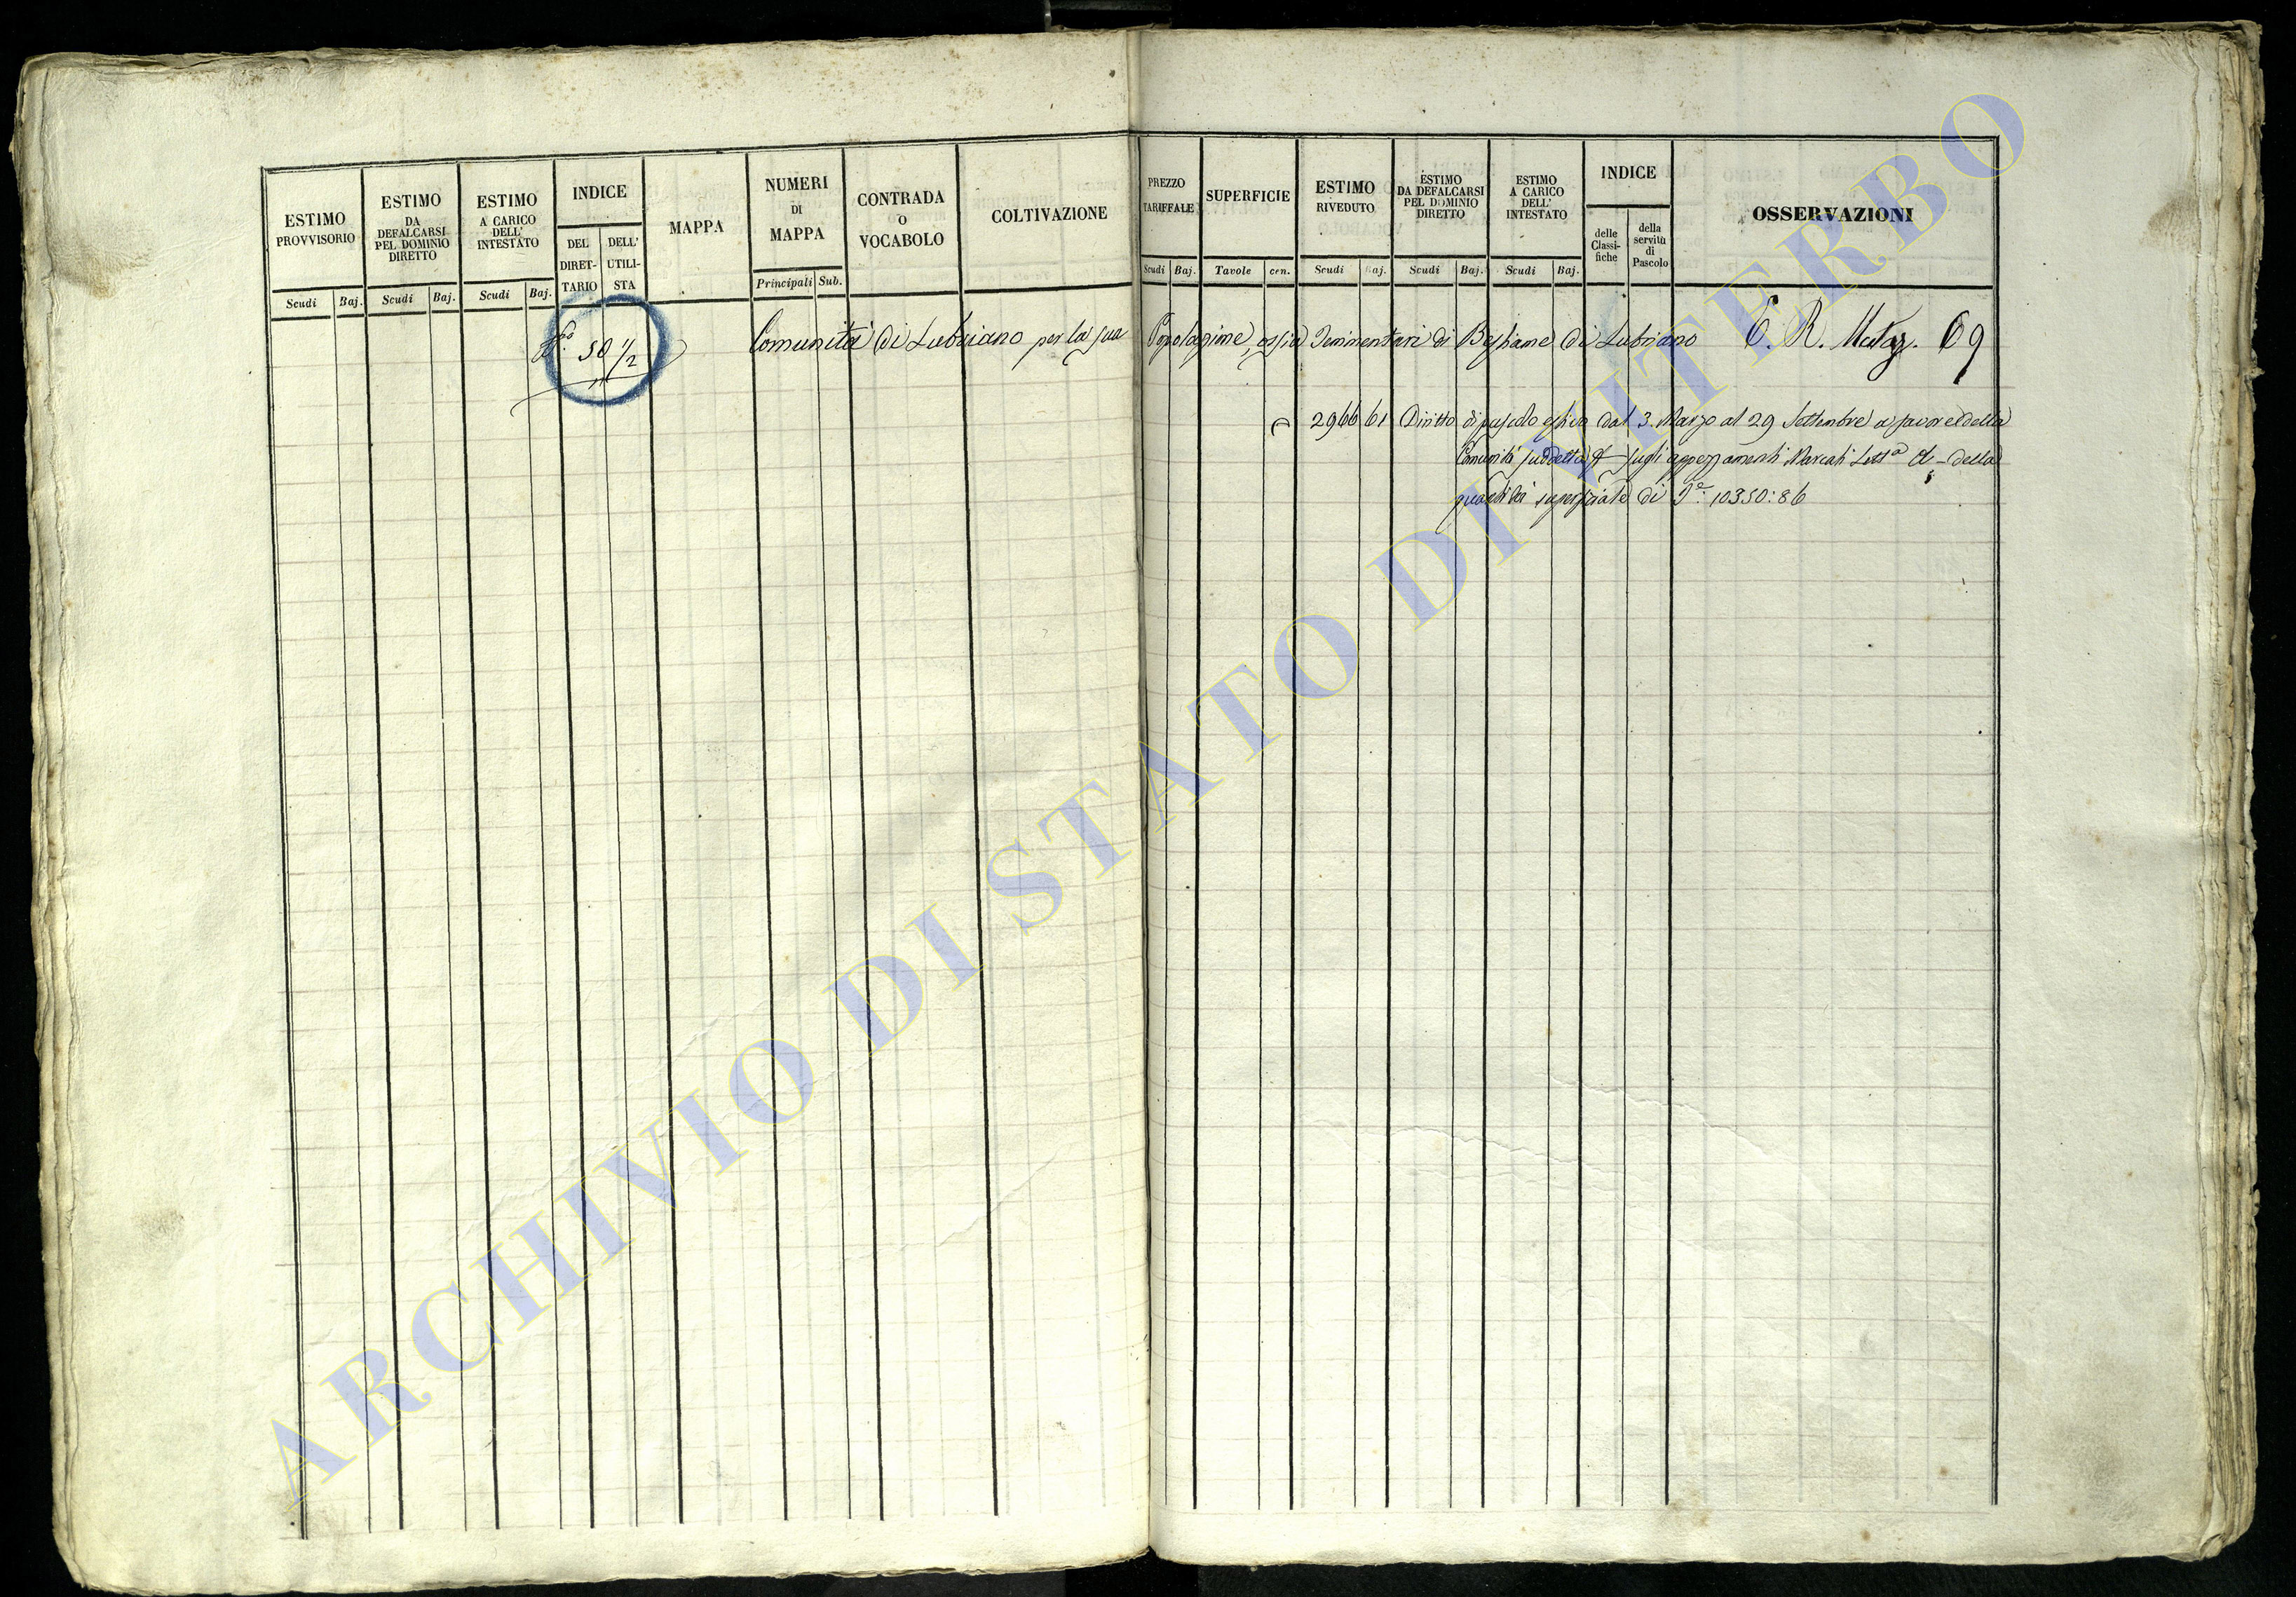 ESTIMO PROVVISORIO
Scudi Baj.
ESTIMO DA DEFALCARSI PEL DOMINIO DIRETTO
Scudi Baj.
ESTIMO A CARICO DELL' INTESTATO
Scudi Baj.
INDICE
DEL DIRETTARIO
DELL' UTILISTA
MAPPA
NUMERI DI MAPPA
Principali Sub.
CONTRADA O VOCABOLO
COLTIVAZIONE
PREZZO TARIFFALE
Scudi Baj.
SUPERFICIE
Tavole cen.
ESTIMO RIVEDUTO
Scudi Baj.
ESTIMO DA DEFALCARSI PEL DOMINIO DIRETTO
Scudi Baj.
ESTIMO A CARICO DELL' INTESTATO
Scudi Baj.
INDICE
delle Classifiche
della servitù di Pascolo
OSSERVAZIONI
50 1/2 Comunità di Lubriano per la sua Popolazione, ossia di Bestiame di Lubriano C. R. 69
2966 61 Diritto di pascolo estivo dal 3. Marzo al 29 Settembre a favore della
Comunità suddetta sugli appezzamenti Marcati Lett.a A della
quantità superficiale di T.e: 10350:86
ARCHIVIO DI STATO DI VITERBO